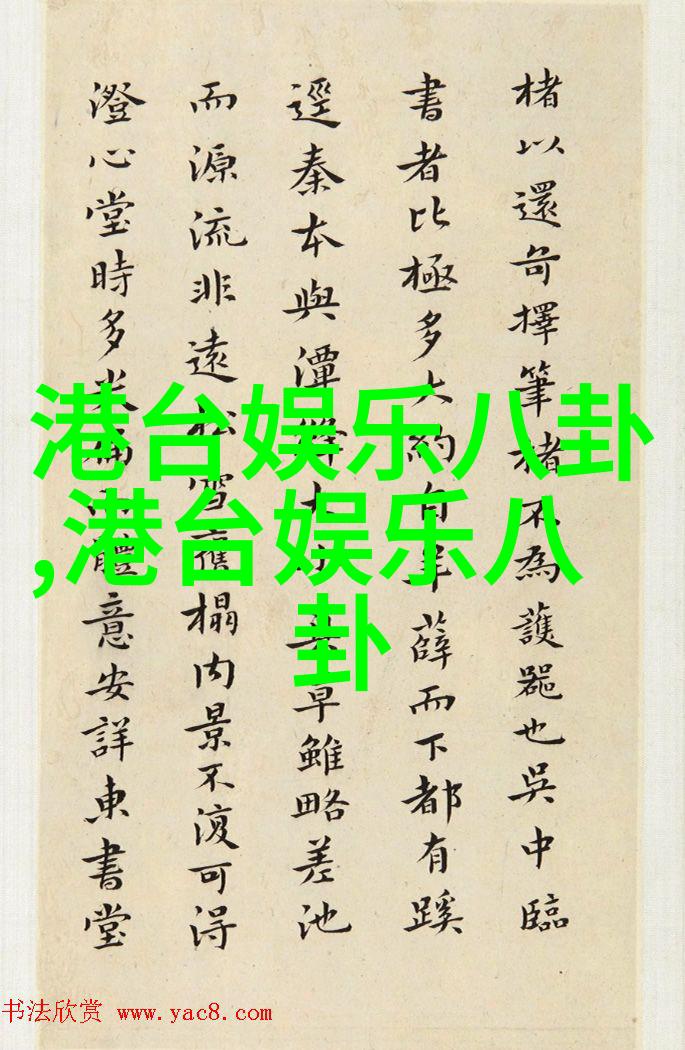 楮以還奇擇筆楮不為護器也吳中臨
書者比極多大約自羊薛而下都有蹊
逕秦本與潭絳大
早雖略差池
而源流非遠松雪舊榻內景不復可得
澄心堂時多米
體意安詳東書堂
港台娱乐八卦
,港台娱乐八
卦
书法欣赏 www.yac8.com